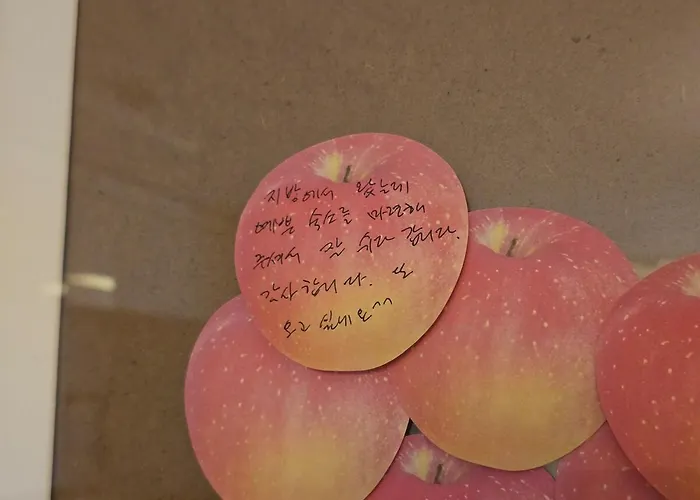 지방에서 왔는데
예쁜 숙소를 마련해
주셔서 잘 쉬다 갑니다.
감사합니다. 또
오고 싶네요^^